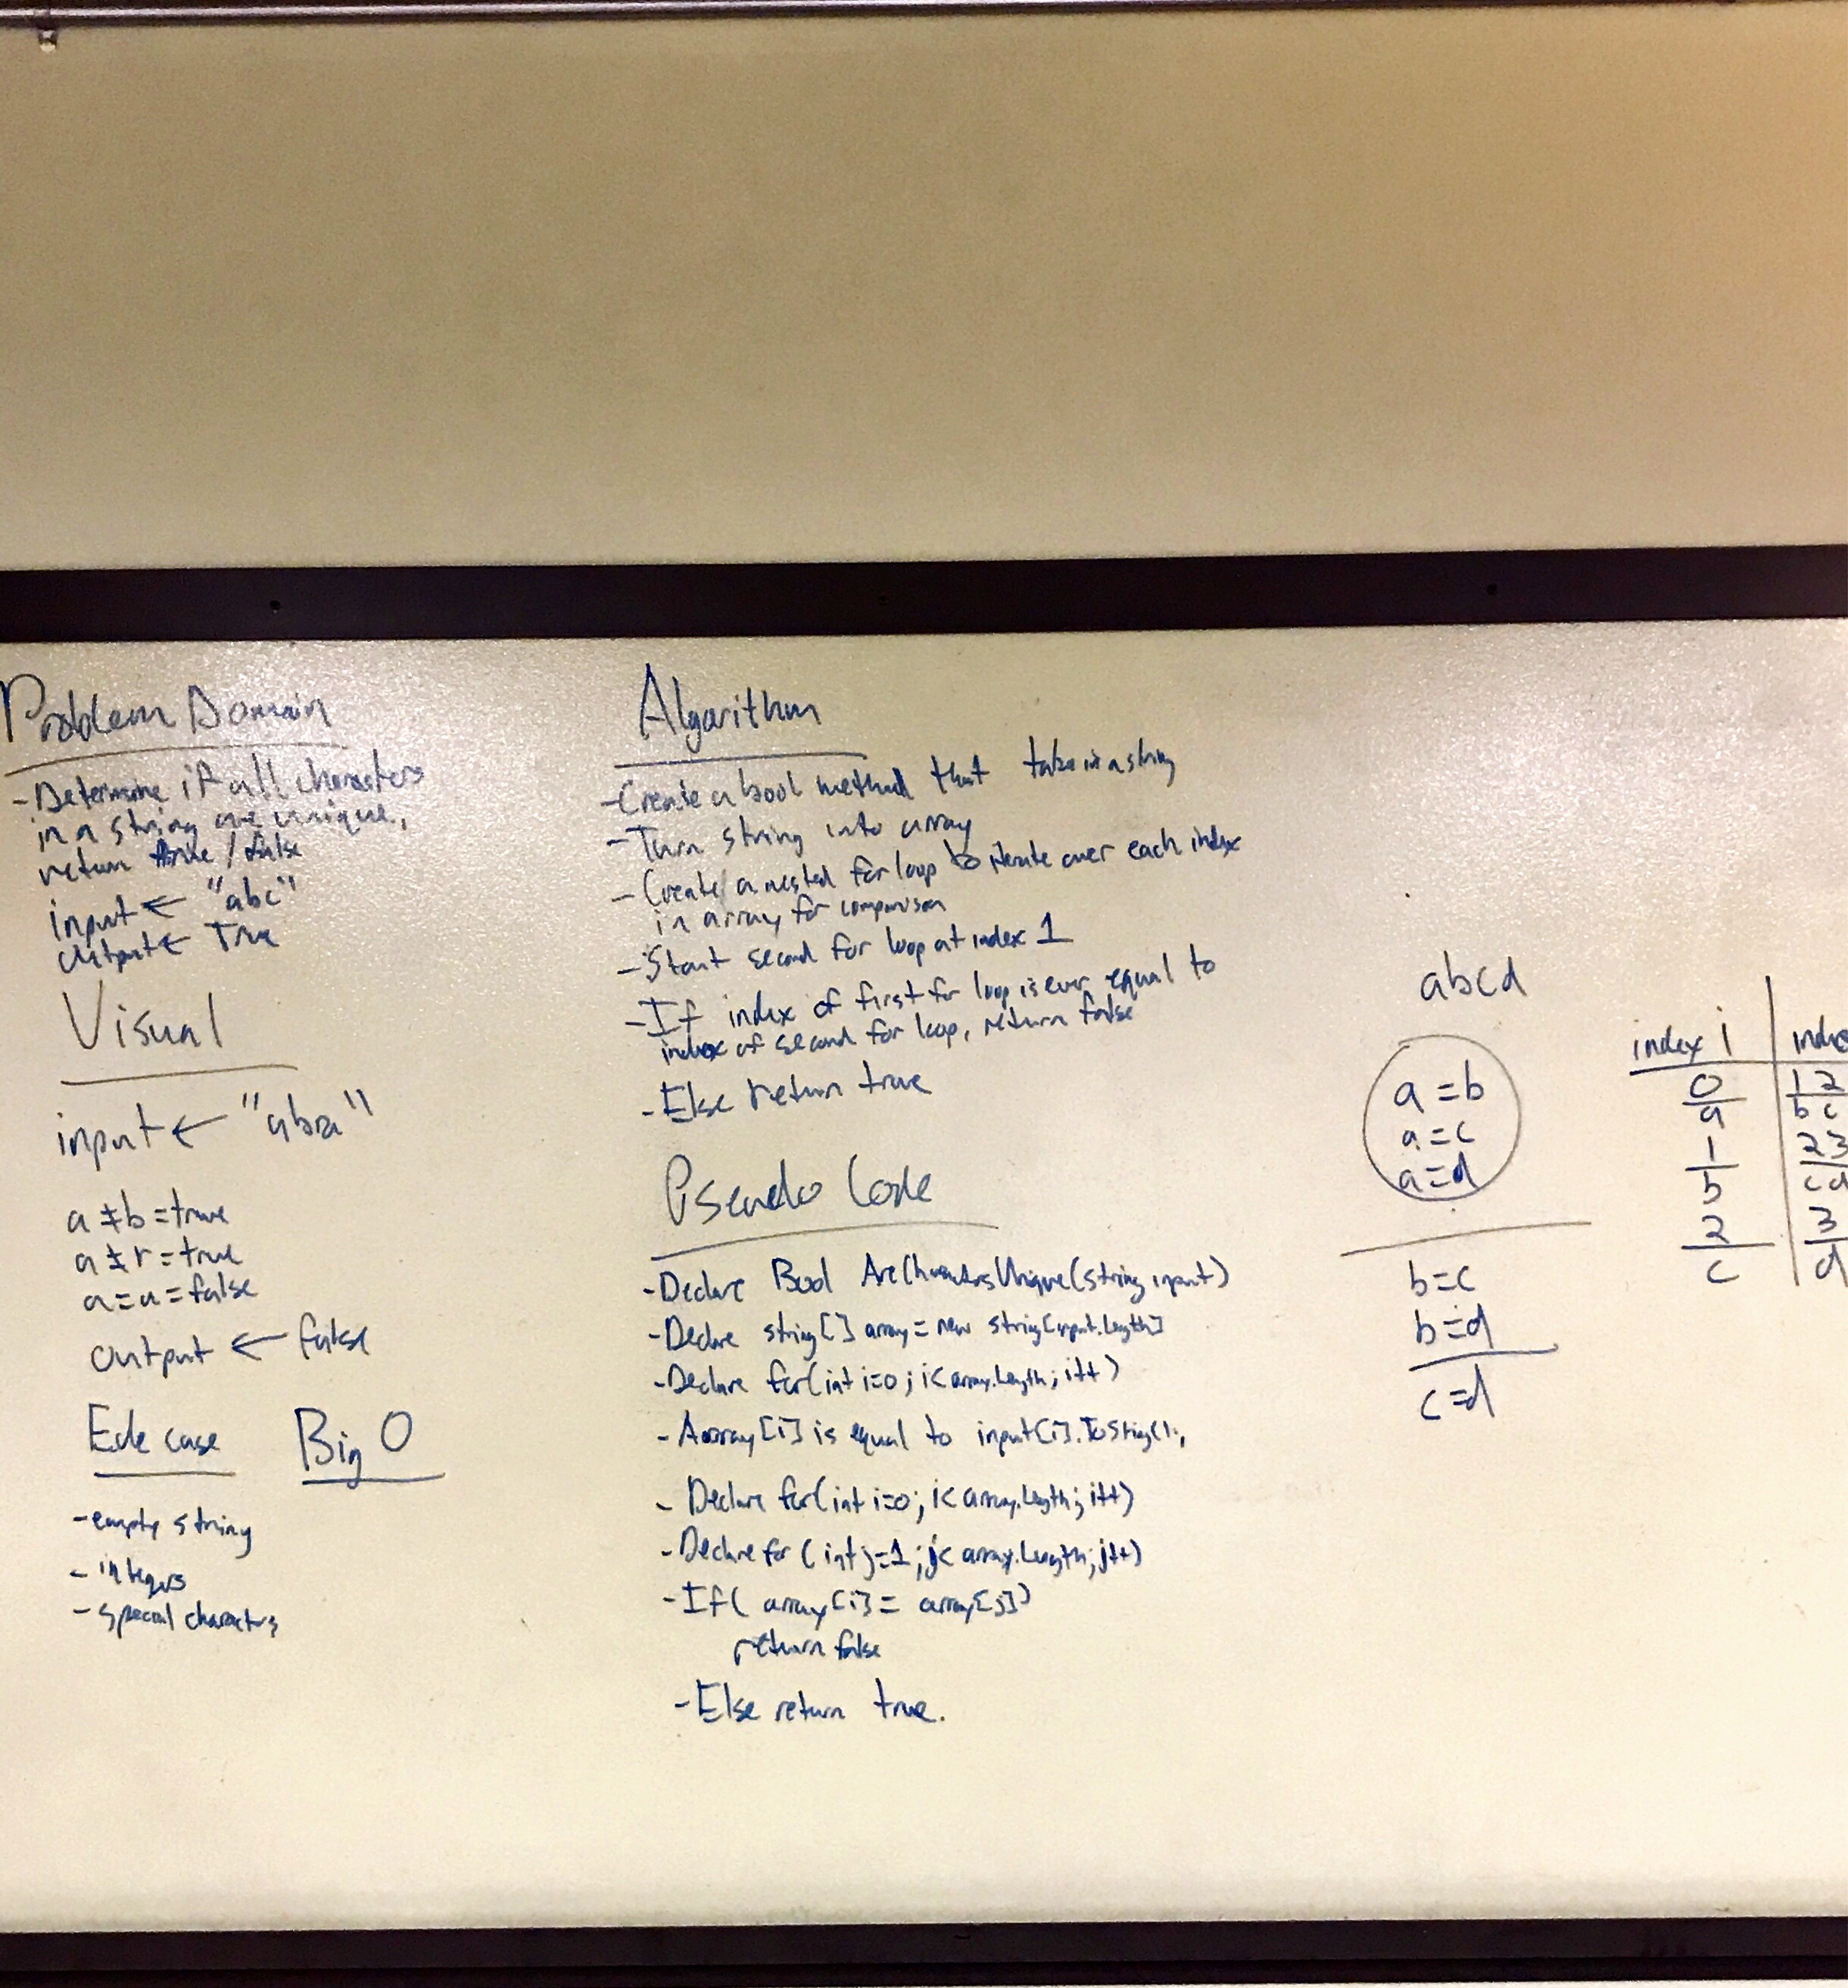 Problem Domain
- Determine if all characters
in a string are unique,
return true / false
input ← "abc"
output ← True
Visual
input ← "abra"
a ≠ b = true
a ≠ r = true
a = a = false
output ← false
Ede case
- empty string
- integers
- special characters
Big O
Algorithm
- Create a bool method that take in a string
- Turn string into array
- Create a nested for loop to iterate over each index
in array for comparison
- Start second for loop at index 1
- If index of first for loop is ever equal to
index of second for loop, return false
- Else return true
Pseudo Code
- Declare Bool Are Unique(string input)
- Declare string[] array = new string[input.Length]
- Declare for(int i=0; i< array.Length; i++)
- Array[i] is equal to input[i].ToString();
- Declare for(int i=0; i< array.Length; i++)
- Declare for (int j=1; j< array.Length; j++)
- If( array[i] = array[j])
return false
- Else return true.
abcd
a = b
a = c
a = d
b = c
b = d
c = d
index i | inde
0 | 1 2
a | b c
1 | 2 3
b | c d
2 | 3
c | d